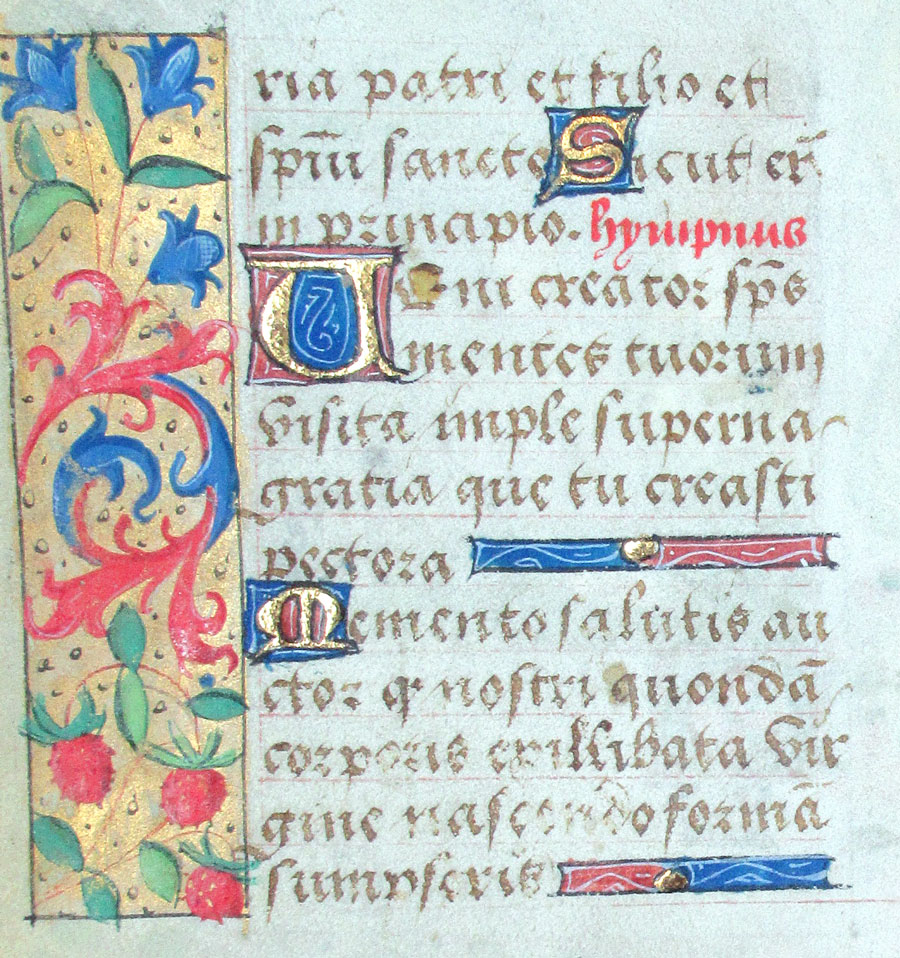 ria patri et filio et
spiū sancto Sicut er̄
in principio. hympnus
Veni creator sp̄s
mentes tuorum
visita imple superna
gratia que tu creasti
pectora
Memento salutis au
ctor qͥ nostri quondā
corporis exillibata vir
gine nascendo formā
sumpseris